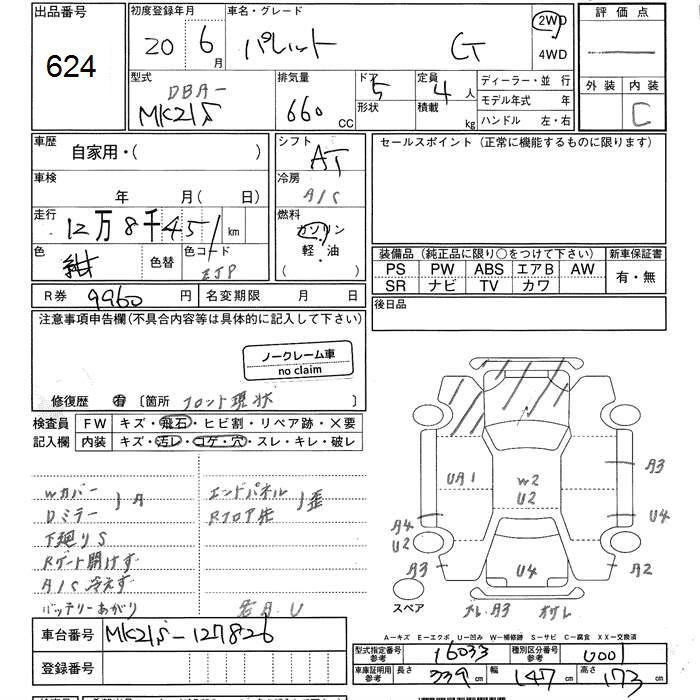 出品番号
624
初度登録年月
20年 6月
車名・グレード
パレット G
2WD
4WD
評価点
外装 内装
C
型式
DBA-
MK21S
排気量
660 CC
ドア 5
形状
定員 4人
積載 kg
ディーラー・並行
モデル年式 年
ハンドル 左・右
車歴 自家用・( )
シフト
AT
セールスポイント(正常に機能するものに限ります)
車検 年 月( 日)
冷房
A/C
走行
12万8千451km
燃料
ガソリン
軽・油
( )
色
紺
色替
色コード
ZJP
装備品(純正品に限り○をつけて下さい)
新車保証書
PS PW ABS エアB AW
有・無
SR ナビ TV カワ
R券 9960円
名変期限 月 日
後日品
注意事項申告欄(不具合内容等は具体的に記入して下さい)
ノークレーム車
no claim
修復歴 有 〔箇所 フロント現状 〕
検査員
記入欄
FW キズ・飛石・ヒビ割・リペア跡・×要
内装 キズ・汚レ・コゲ・穴・スレ・キレ・破レ
Wカバー
Dミラー
下廻りS
Rゲート開けず
A/C冷えず
バッテリーあがり
エンドパネル
Rフロア先
歪
UA1
W2
U2
A3
U4
A4
U2
A3
U4
A2
スペア
A3
A-キズ E-エクボ U-凹み W-補修跡 S-サビ C-腐食 XX-交換済
車台番号 MK21S-127826
登録番号
型式指定番号
参考
16033
種別区分番号
参考
0001
車庫証明用
参考
長さ 339cm 幅 147cm 高さ 173cm